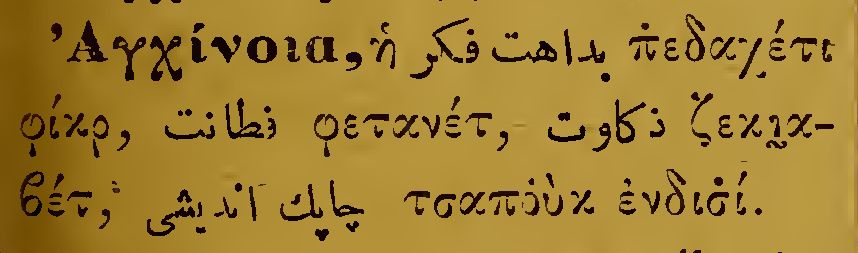 Ἀγχίνοια, ἡ بداهت فكر π̇εδαχέτι
φίκρ, فطانت φετανέτ, ذكاوت ζεκια-
βέτ, چاپك انديشى τσαποὺκ ἐνδισ̇ί.